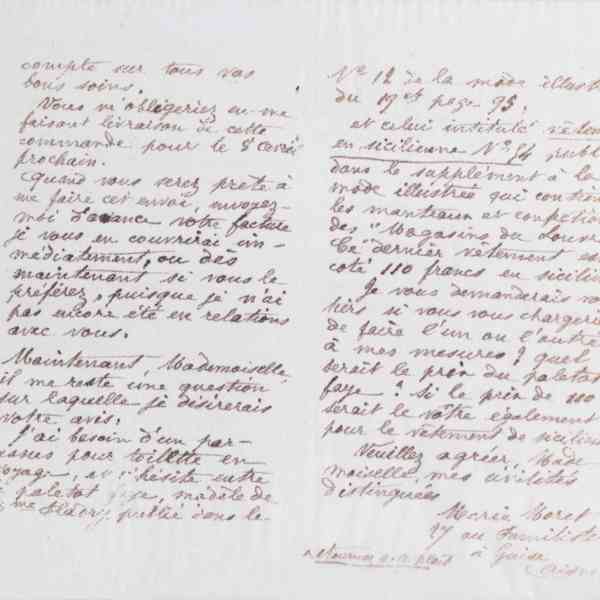 compte sur tous vos
bons soins.
Vous m'obligeriez en me
faisant livraison de cette
commande pour le 8 avril
prochain.
Quand vous serez prête à
me faire cet envoi, envoyez-
moi d'avance votre facture
je vous en couvrirai im-
médiatement, ou dès
maintenant si vous le
préférez, puisque je n'ai
pas encore été en relations
avec vous.
Maintenant, Mademoiselle,
il me reste une question
sur laquelle je désirerais
votre avis.
J'ai besoin d'un par-
dessus pour toilette en
voyage, et j'hésite entre
paletot modèle de
publié dans le
Nº 12 de la mode illust
du 19 page 95.
et celui intitulé vêtem
en sicilienne Nº 84 publ
dans le supplément à la
mode illustrée qui contien
les manteaux et confection
des "Magasins du Louvre
Ce dernier vêtement est
coté 110 francs en sicilien
Je vous demanderais vo
tiers si vous vous chargerie
de faire l'un ou l'autre
à mes mesures? quel
serait le prix du paletot
faye? Si le prix de 110
serait le vôtre également
pour le vêtement de sicilien
Veuillez agréer, Made
moiselle, mes civilités
distinguées
Marie Moret
27 au Familistè
à Guise
Aisne